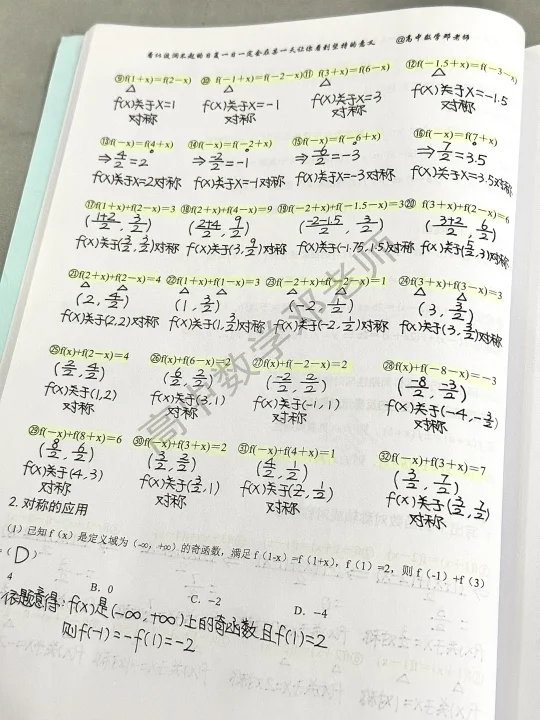 看似波澜不起的日复一日一定会在某一天让你看到坚持的意义 @高中数学邓老师
⑨f(1+x)=f(2-x) ⑩ f(-1+x)=f(-2-x) ⑪ f(3+x)=f(6-x) ⑫f(-1.5+x)=f(-3-x)
f(x)关于X=1 f(x)关于X=-1 f(x)关于X=3 f(x)关于X=-1.5
对称 对称 对称 对称
⑬f(-x)=f(4+x) ⑭f(-x)=f(-2+x) ⑮f(-x)=f(-6+x) ⑯f(-x)=f(7+x)
⇒4/2=2 ⇒-2/2=-1 ⇒-6/2=-3 ⇒7/2=3.5
f(x)关于X=2对称 f(x)关于X=-1对称 f(x)关于X=-3对称 f(x)关于X=3.5对称
⑰f(1+x)+f(2-x)=3 ⑱f(2+x)+f(4-x)=9 ⑲f(-2+x)+f(-1.5-x)=3 ⑳ f(3+x)+f(2-x)=6
(1+2/2, 3/2) (2+4/2, 9/2) (-2-1.5/2, 3/2) (3+2/2, 6/2)
f(x)关于(3/2, 3/2)对称 f(x)关于(3, 9/2)对称 f(x)关于(-1.75,1.5)对称 f(x)关于(5/2,3)对称
㉑f(2+x)+f(2-x)=4 ㉒f(1+x)+f(1-x)=3 ㉓f(-2+x)+f(-2-x)=1 ㉔f(3+x)+f(3-x)=3
(2, 4/2) (1, 3/2) (-2, 1/2) (3, 3/2)
f(x)关于(2,2)对称 f(x)关于(1,3/2)对称 f(x)关于(-2,1/2)对称 f(x)关于(3,3/2)对称
㉕f(x)+f(2-x)=4 ㉖f(x)+f(6-x)=2 ㉗f(x)+f(-2-x)=2 ㉘f(x)+f(-8-x)=-3
(2/2, 4/2) (6/2, 2/2) (-2/2, 2/2) (-8/2, -3/2)
f(x)关于(1,2) f(x)关于(3,1) f(x)关于(-1,1) f(x)关于(-4,-3/2)
对称 对称 对称 对称
㉙f(-x)+f(8+x)=6 ㉚f(-x)+f(3+x)=2 ㉛f(-x)+f(4+x)=1 ㉜f(-x)+f(3+x)=7
(8/2, 6/2) (3/2, 2/2) (4/2, 1/2) (3/2, 7/2)
f(x)关于(4,3) f(x)关于(3/2,1) f(x)关于(2,1/2) f(x)关于(3/2,7/2)
对称 对称 对称 对称
2. 对称的应用
(1) 已知 f(x) 是定义域为 (-∞, +∞) 的奇函数, 满足 f(1-x)=f(1+x), f(1)=2, 则 f(-1)+f(3)
=( D )
4 B. 0 C. -2 D. -4
依题意得: f(x)是(-∞,+∞)上的奇函数且f(1)=2
则f(-1)=-f(1)=-2
高中数学邓老师